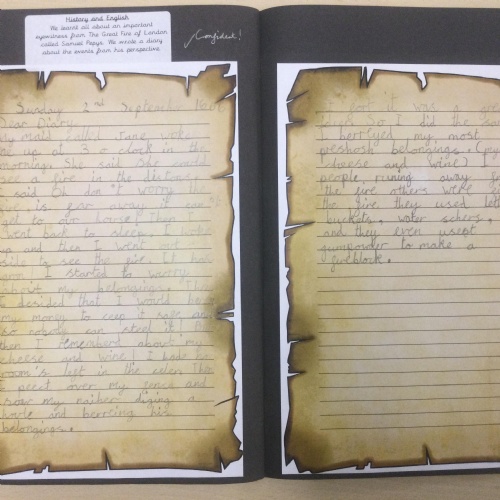 History and English
We learnt all about an important
eyewitness from The Great Fire of London
called Samuel Pepys. We wrote a diary
about the events from his perspective.
Confident!
Sunday 2nd September
Dear Diary
my maid called Jane woke
me up at 3 o clock in the
morning. She said She could
see a fire in the distans.
I said Oh don't worry the
fire is far away it can't
get to our house! Then I
went back to sleep. I woke
up and then I went out
side to see the fire. It had
I started to worry
about my belongings. Then
I desided that I would
my money to ceep it safe and
so nobody can steel it!
then I rememberd about my
cheese and wine! I hade no
room's left in the celer. Then
I peect over my fence and
sor my naiber diging a
hole and berreing his
belongings.
it was a
idea. So I did the same
I berryed my most
preshosh belongings.
cheese and wine) I
people runing away
the fire others were
the fire they used
buckets, water
and they even usept
gunpowder to make a
fireblock.